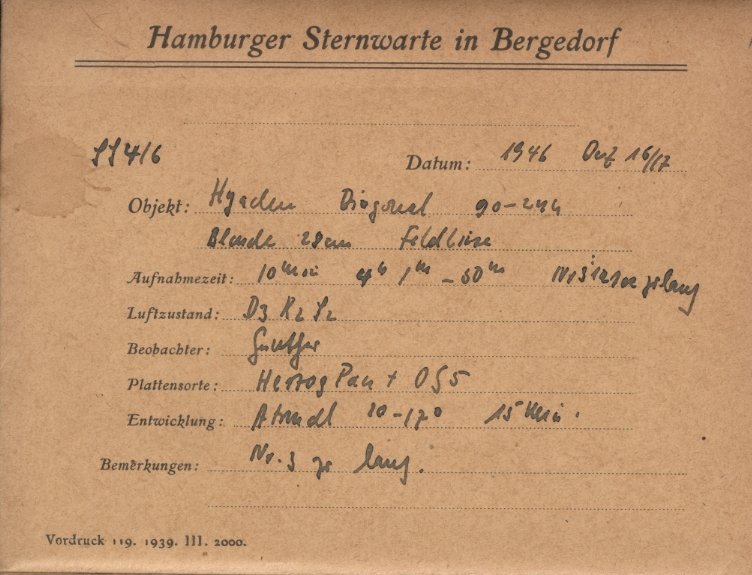 Hamburger Sternwarte in Bergedorf
Datum: 1946 16/17
Objekt: Hyaden Diagonal 90-244
Blende 28cm Feldlinse
Aufnahmezeit: 10 min 4h 1m - 50m
Luftzustand: D3 R2 S2
Beobachter: Günther
Plattensorte: Herzog Pan + OG5
Entwicklung: 15 Min.
Bemerkungen: Nr. 3 zu lang.
Vordruck 119. 1939. III. 2000.